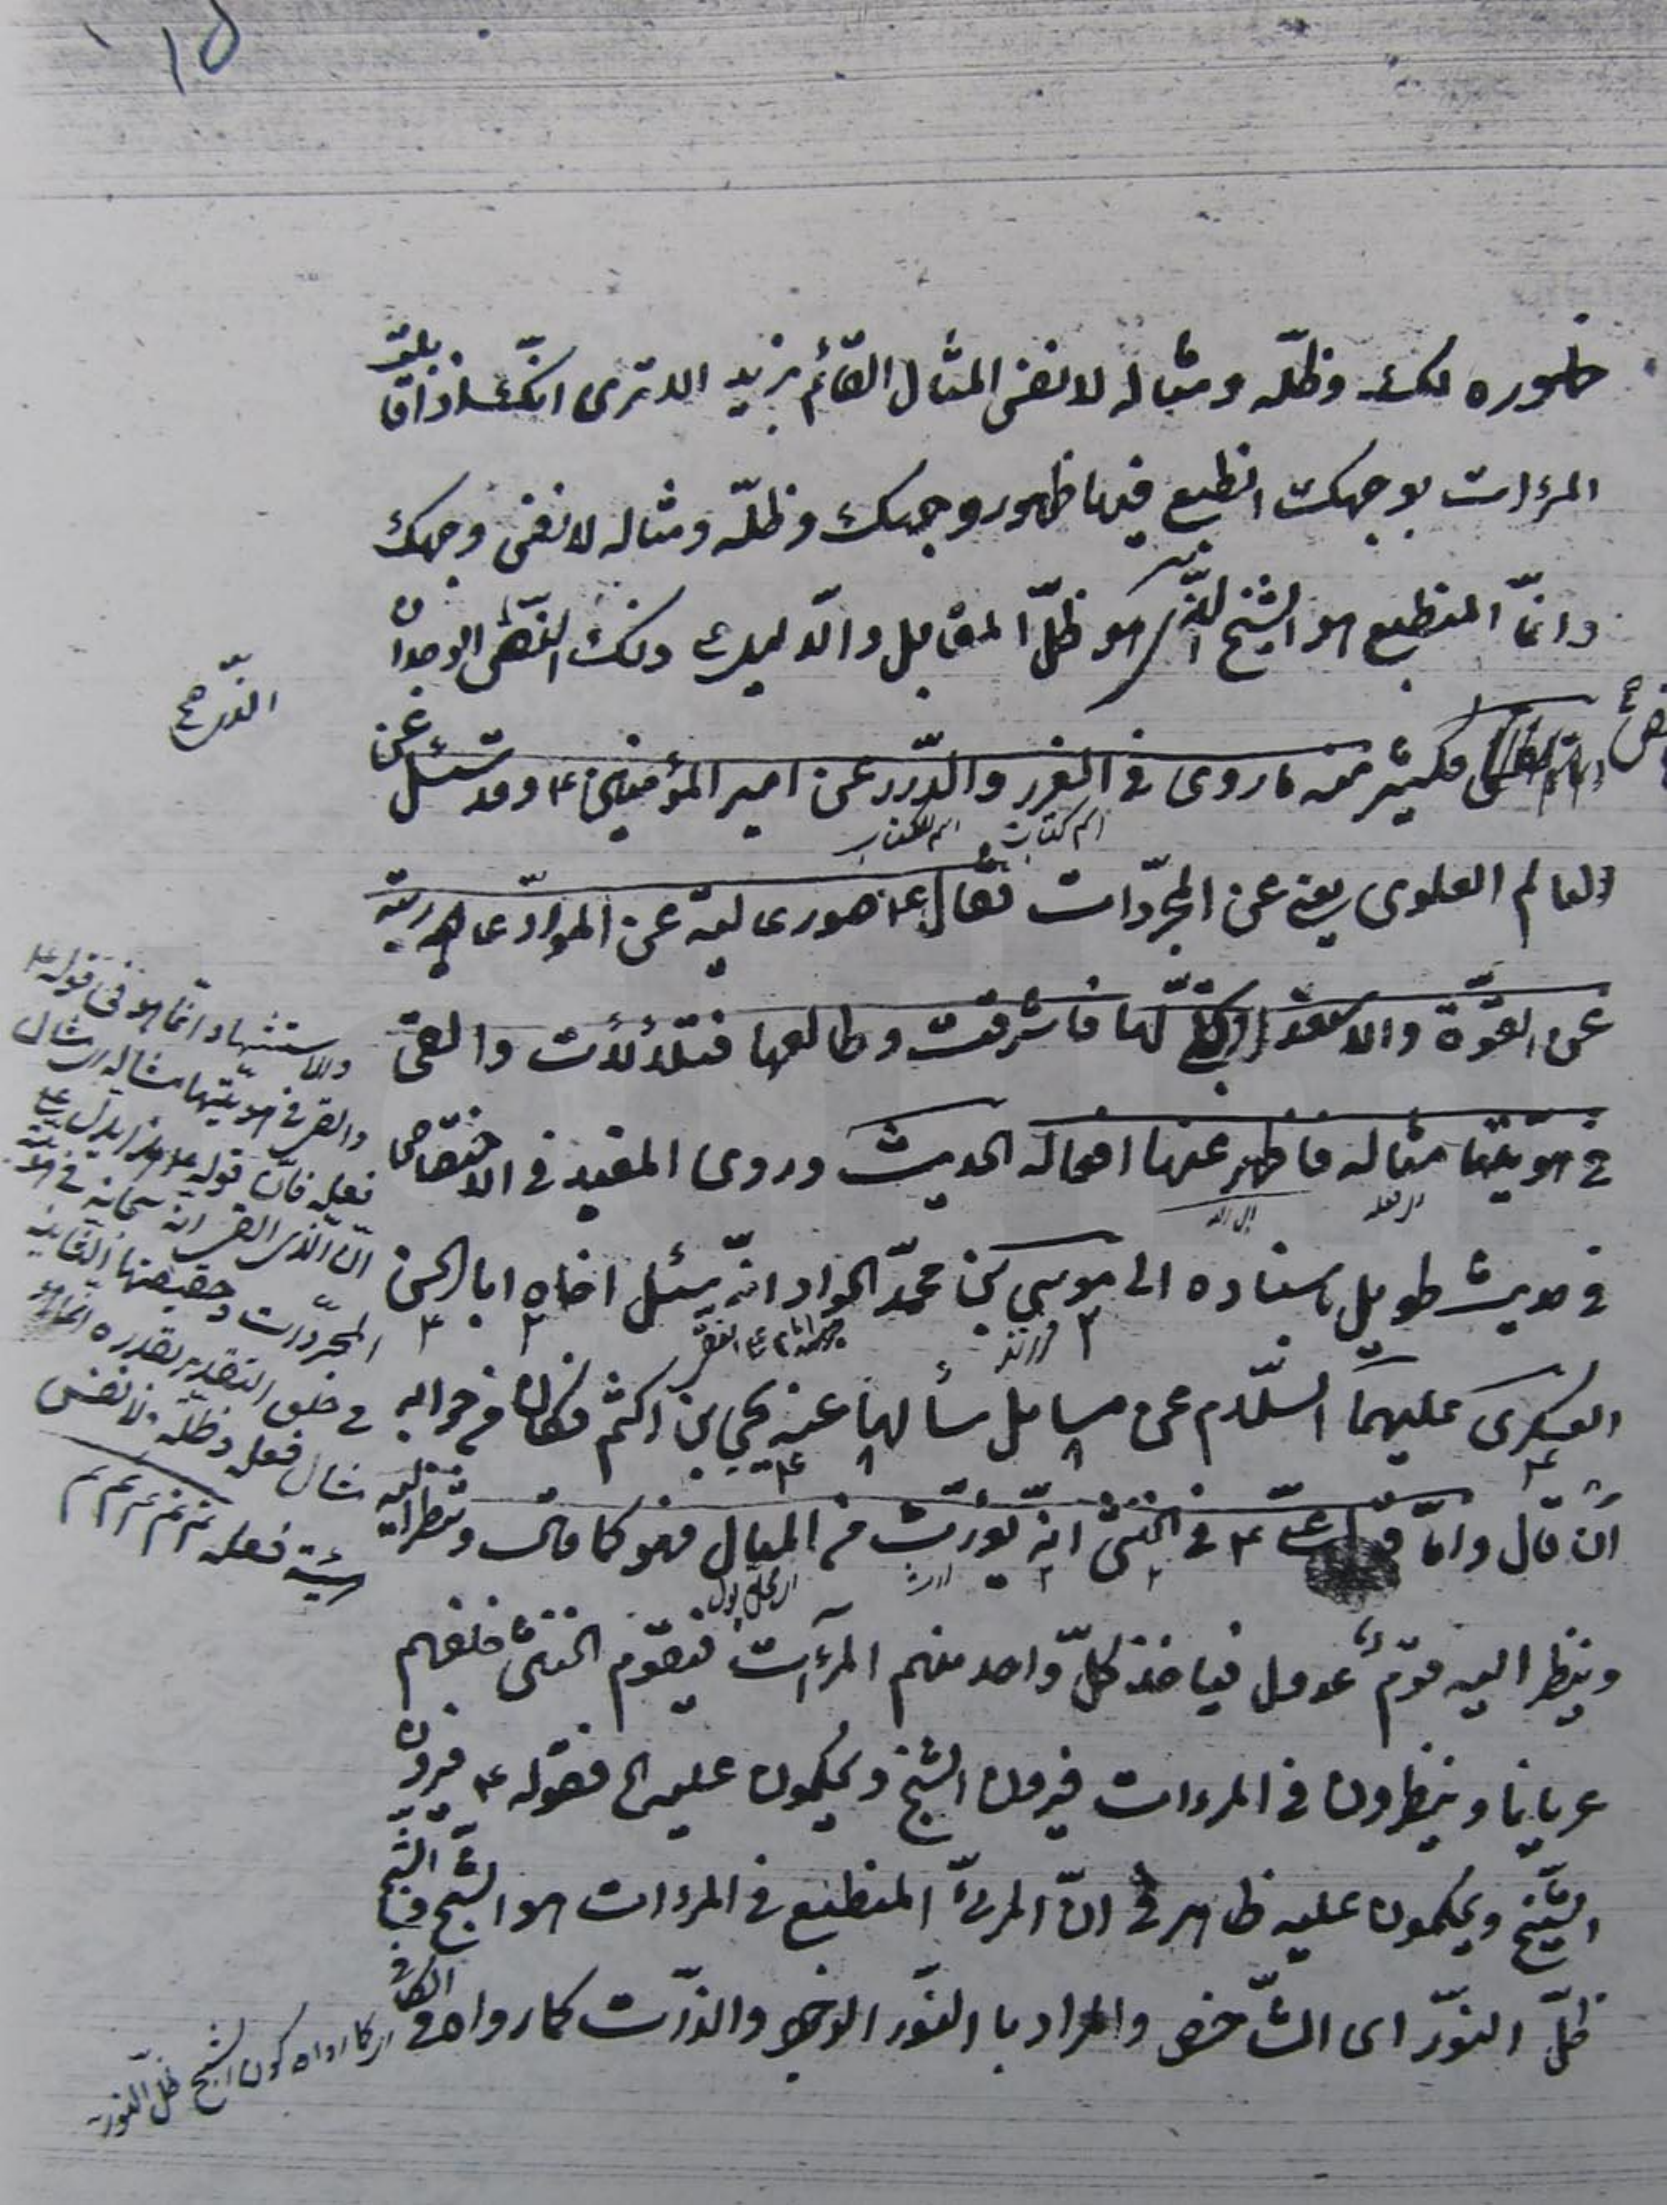 ١٥
ظهوره لك وظلّه ومثاله لا نفس المثال القائم بزيد الا ترى انّك اذا قابلت
المرءات بوجهك انطبع فيها ظهور وجهك وظلّه ومثاله لا نفس وجهك
وانّما المنطبع هو الشبح الّذى هو ظلّ المقابل والدّليل على ذلك النصّ والوجدان
امّا النصّ فكثير منه ما روى فى الغرر والدّرر عن امير المؤمنين ع وقد سئل عن
العالم العلوى يعنى عن المجرّدات فقال ع صور عالية عن الموادّ عارية
اسم كتاب اسم الكتاب
عن القوّة والاستعداد تجلّى لها فاشرقت وطالعها فتلألأت والقى
فى هويّتها مثاله فاظهر عنها افعاله الحديث وروى المفيد فى الاختصاص
فى حديث طويل باسناده الى موسى بن محمّد الجواد انّه سئل اخاه ابا الحسن
العسكرى عليهما السّلام عن مسايل سألها عنه يحيى بن اكثم فكان فى جوابه
ان قال وامّا قول علىّ ع فى الخنثى انّه يورّث من المبال فهو كما قال وتنظر اليه
وينظر اليه قوم عدول فياخذ كلّ واحد منهم المرءات فيقوم الخنثى خلفهم
عريانا وينظرون فى المرءات فيرون الشبح ويحكمون عليه الخ فقوله ع فيرون
الشبح ويحكمون عليه ظاهر فى انّ المرئىّ المنطبع فى المرءات هو الشبح والشبح
ظلّ النّور اى الشّاخص والمراد با النّور الوجود والذّات كما رواه فى الكافى
والاستشهاد انّما هو فى قوله ع
والقى فى هويّتها مثاله اى مثال
فعله فانّ قوله ع هذا يدلّ على
انّ الّذى القى انه سبحانه فى هويّة
المجرّدات وحقيقتها القابلة
مثال فعله وظلّه لا نفس
فعله
اى كما رواه كون الشبح ظلّ النّور